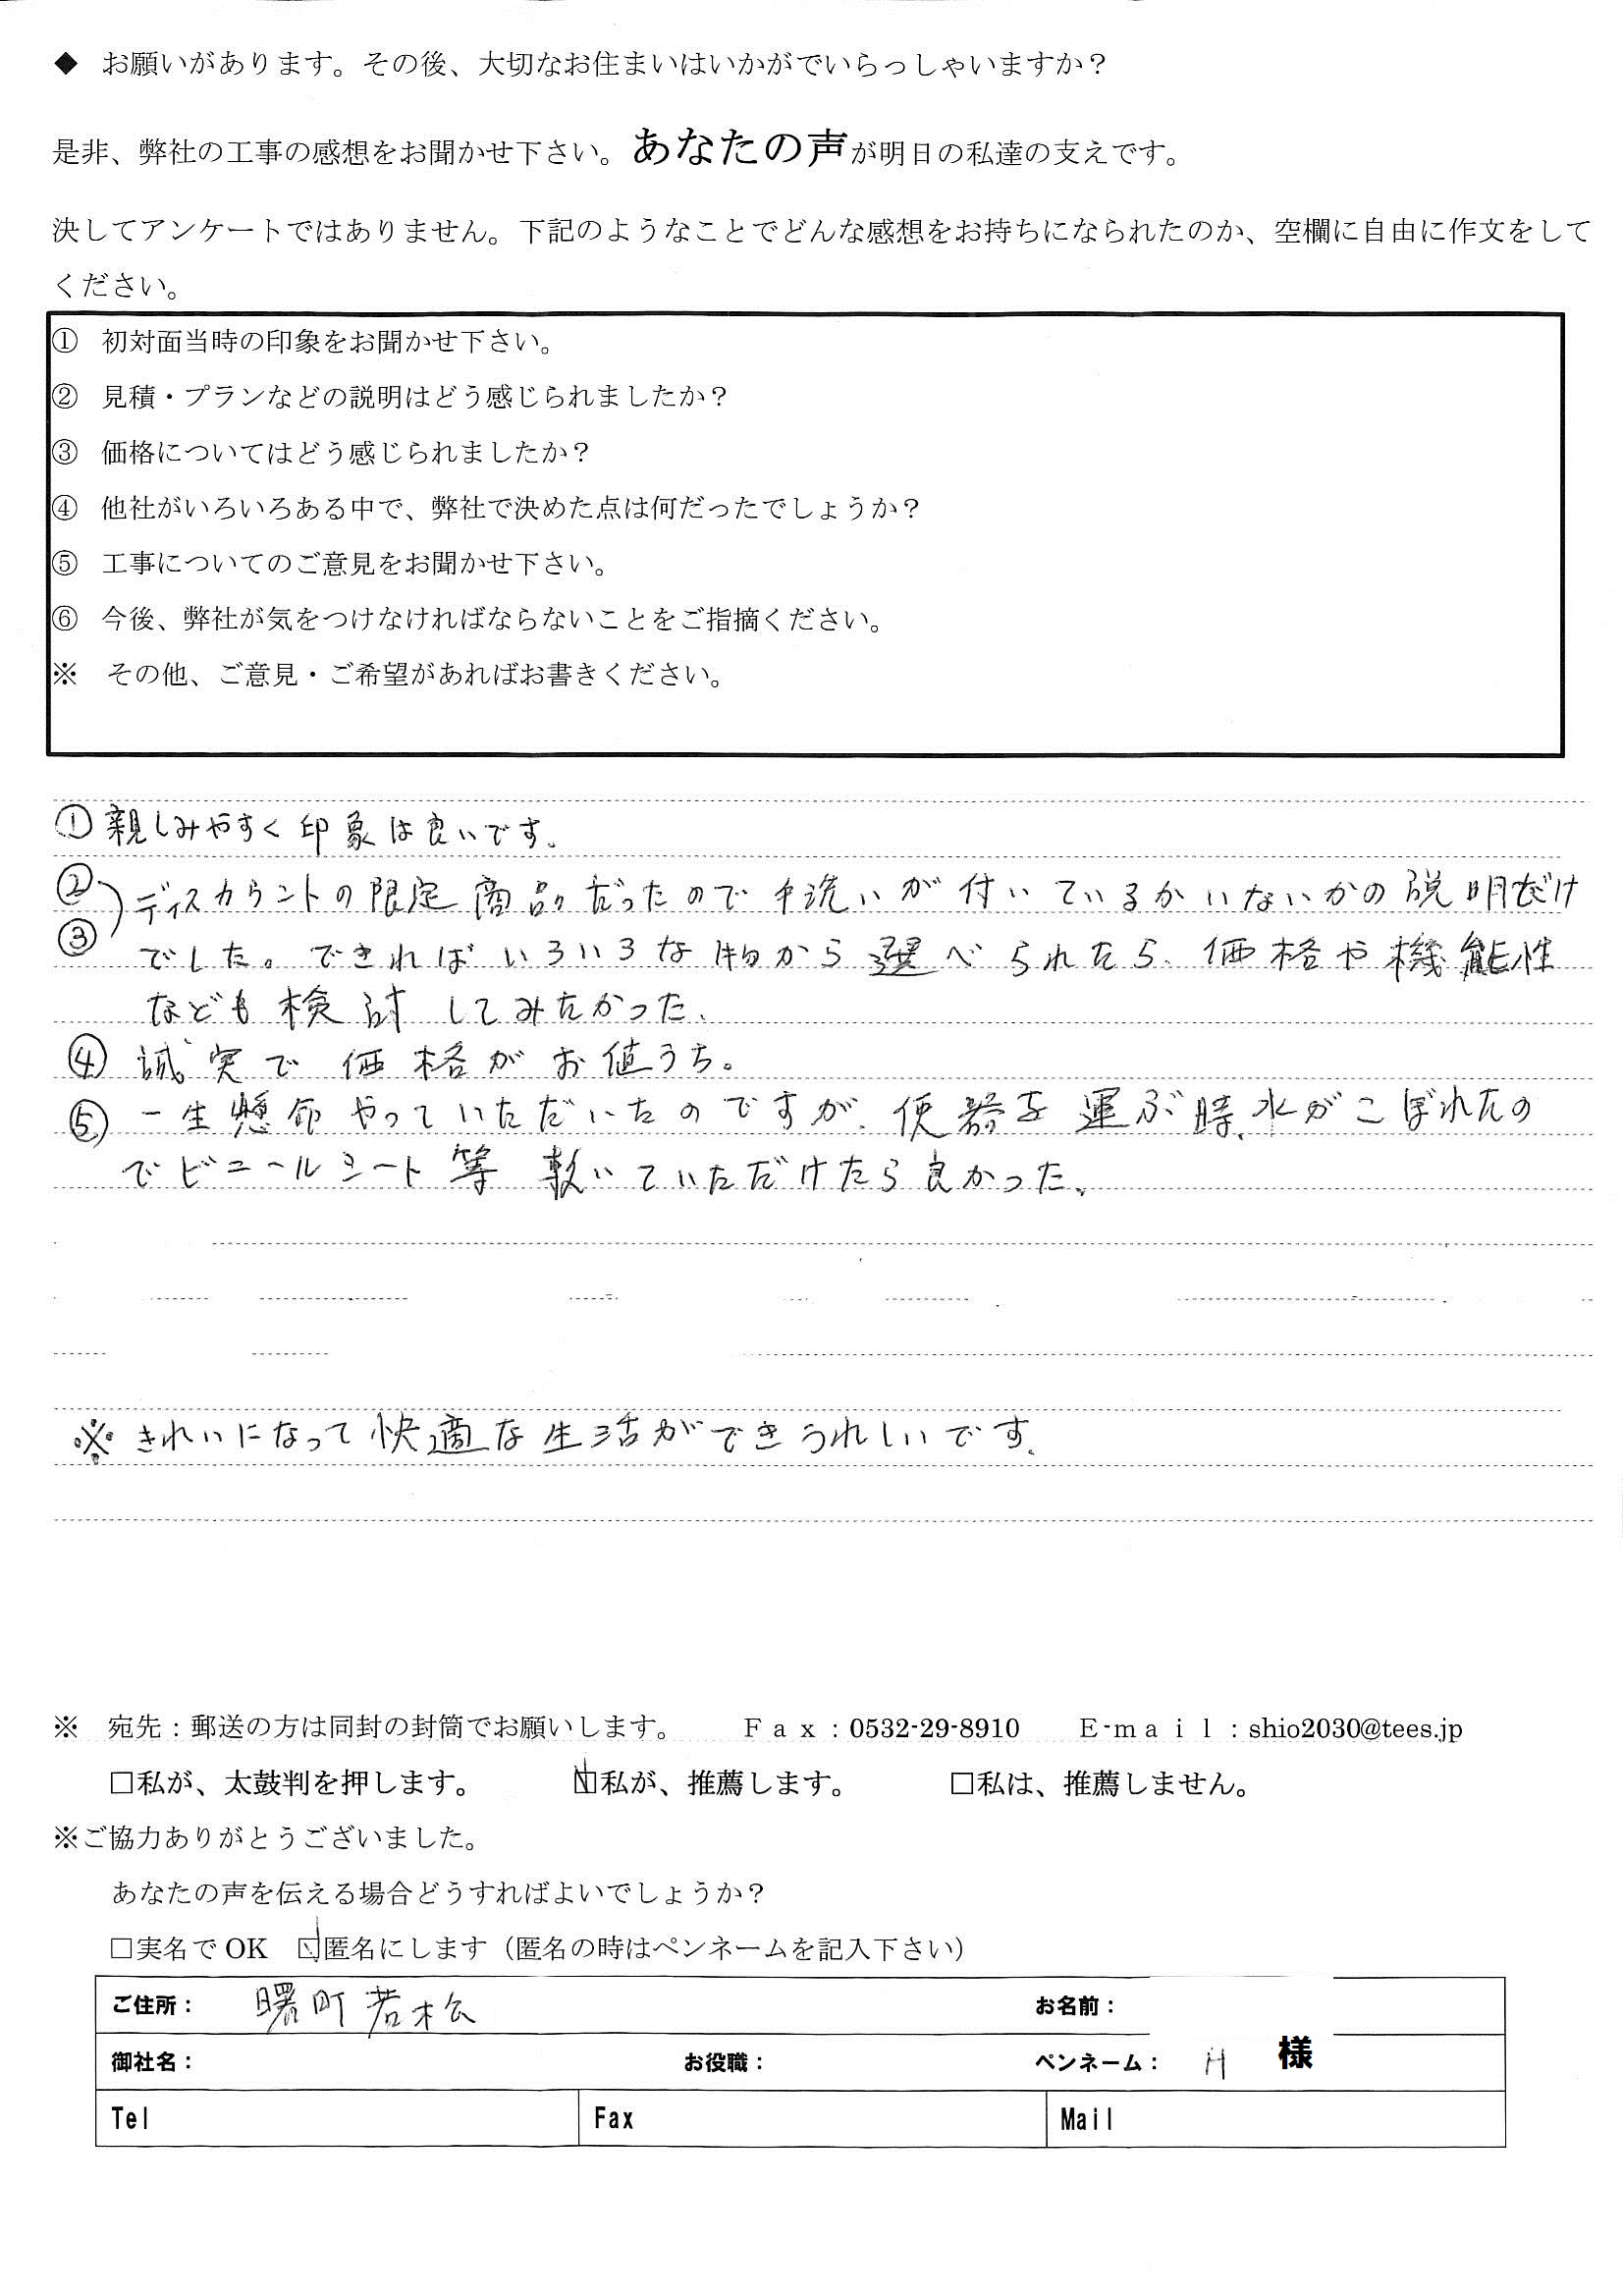 ◆ お願いがあります。その後、大切なお住まいはいかがでいらっしゃいますか？
是非、弊社の工事の感想をお聞かせ下さい。あなたの声が明日の私達の支えです。
決してアンケートではありません。下記のようなことでどんな感想をお持ちになられたのか、空欄に自由に作文をして
ください。
① 初対面当時の印象をお聞かせ下さい。
② 見積・プランなどの説明はどう感じられましたか？
③ 価格についてはどう感じられましたか？
④ 他社がいろいろある中で、弊社で決めた点は何だったでしょうか？
⑤ 工事についてのご意見をお聞かせ下さい。
⑥ 今後、弊社が気をつけなければならないことをご指摘ください。
※ その他、ご意見・ご希望があればお書きください。
① 親しみやすく印象は良いです。
② ディスカウントの限定商品だったので手洗いが付いているかいないかの説明だけ
③ でした。できればいろいろな物から選べられたら、価格や機能性
なども検討してみたかった。
④ 誠実で価格がお値うち。
⑤ 一生懸命やっていただいたのですが、便器を運ぶ時、水がこぼれたの
でビニールシート等敷いていただけたら良かった。
※ きれいになって快適な生活ができうれしいです。
※ 宛先：郵送の方は同封の封筒でお願いします。 Ｆａｘ：0532-29-8910 Ｅ-ｍａｉｌ：shio2030@tees.jp
□私が、太鼓判を押します。 ☑私が、推薦します。 □私は、推薦しません。
※ご協力ありがとうございました。
あなたの声を伝える場合どうすればよいでしょうか？
□実名でOK ☑匿名にします（匿名の時はペンネームを記入下さい）
ご住所： 曙町若松 お名前：
御社名： お役職： ペンネーム： H 様
Tel Fax Mail